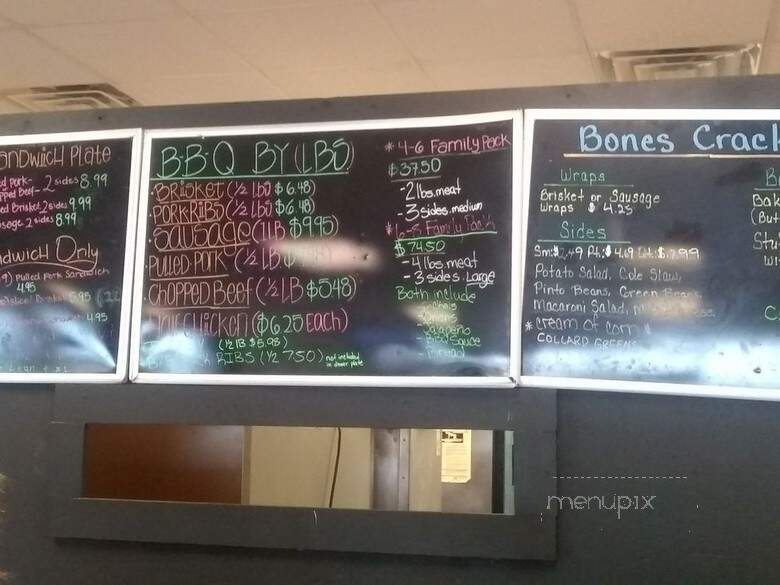 andwich Plate
ed pork-
pped Beef- 2 sides 8.99
ed Brisket 2 sides 9.99
usage 2 sides 8.99
ndwich Only
Pulled Pork Sandwich
4.95
5.95
4.95
B·B·Q BY (LBS)
·Brisket (½ lb) $6.48)
·Pork Ribs (½ lb $6.48)
·Sausage (1lb $9.95)
·Pulled Pork (½ lb
·Chopped Beef (½ LB $5.48)
Chicken ($6.25 Each)
(½ LB $5.98)
RIBS (½ 7.50) not included
in dinner plate
* 4-6 Family Pack
$37.50
-2 lbs. meat
-3 sides. medium
*6-8 Family Pack
$74.50
-4 lbs. meat
-3 sides. Large
Both include
-Onions
-Jalapeño
-BBQ Sauce
-Bread
Bones Crack
Wraps
Brisket or Sausage
Wraps $4.25
Sides
Sm: $2.49 Pt: $4.69 Qt: $7.99
Potato Salad, Cole Slaw,
Pinto Beans, Green Beans
Macaroni Salad,
*cream of corn
COLLARD GREENS
B
Bak
(Bu
Stu
wi
C
menupix